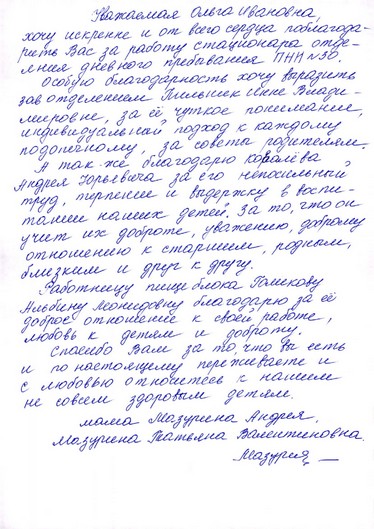 Уважаемая Ольга Ивановна,
хочу искренне и от всего сердца поблагода-
рить Вас за работу стационара отде-
ления дневного пребывания ПНИ №30.
Особую благодарность хочу выразить
зав отделением Инне Влади-
мировне, за её чуткое понимание,
индивидуальный подход к каждому
подопечному, за советы родителям.
А так же благодарю Королёва
Андрея Юрьевича за его непосильный
труд, терпение и выдержку в воспи-
тании наших детей. За то, что он
учит их доброте, уважению, доброму
отношению к старшим, родным,
близким и друг к другу.
Работницу пищеблока Голикову
Альбину Леонидовну благодарю за её
доброе отношение к своей работе,
любовь к детям и доброту.
Спасибо Вам за то, что вы есть
и по настоящему переживаете и
с любовью относитесь к нашим
не совсем здоровым детям.
мама Мазурина Андрея,
Мазурина Татьяна Валентиновна.